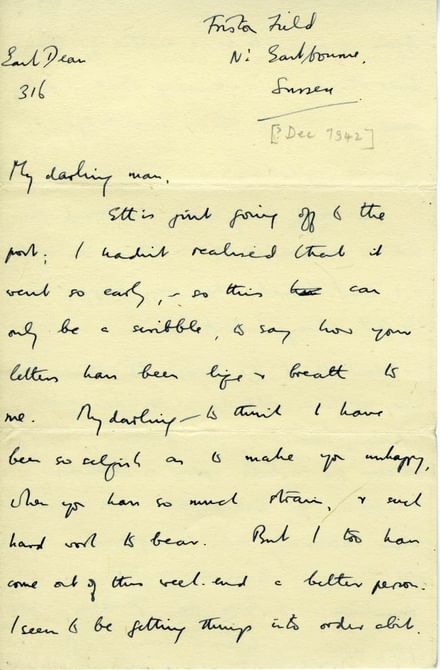 Friston Field
East Dean
Nr Eastbourne.
316
Sussex
[? Dec 1942]
My darling man,
is just going off to the
post; I hadn't realised that it
went so early, & so this can
only be a scribble, to say how your
letters have been life & breath to
me. My darling – to think I have
been so selfish as to make you unhappy,
when you have so much strain, & such
hard work to bear. But I too have
come out of this week-end a better person.
I seem to be getting things into order a bit.